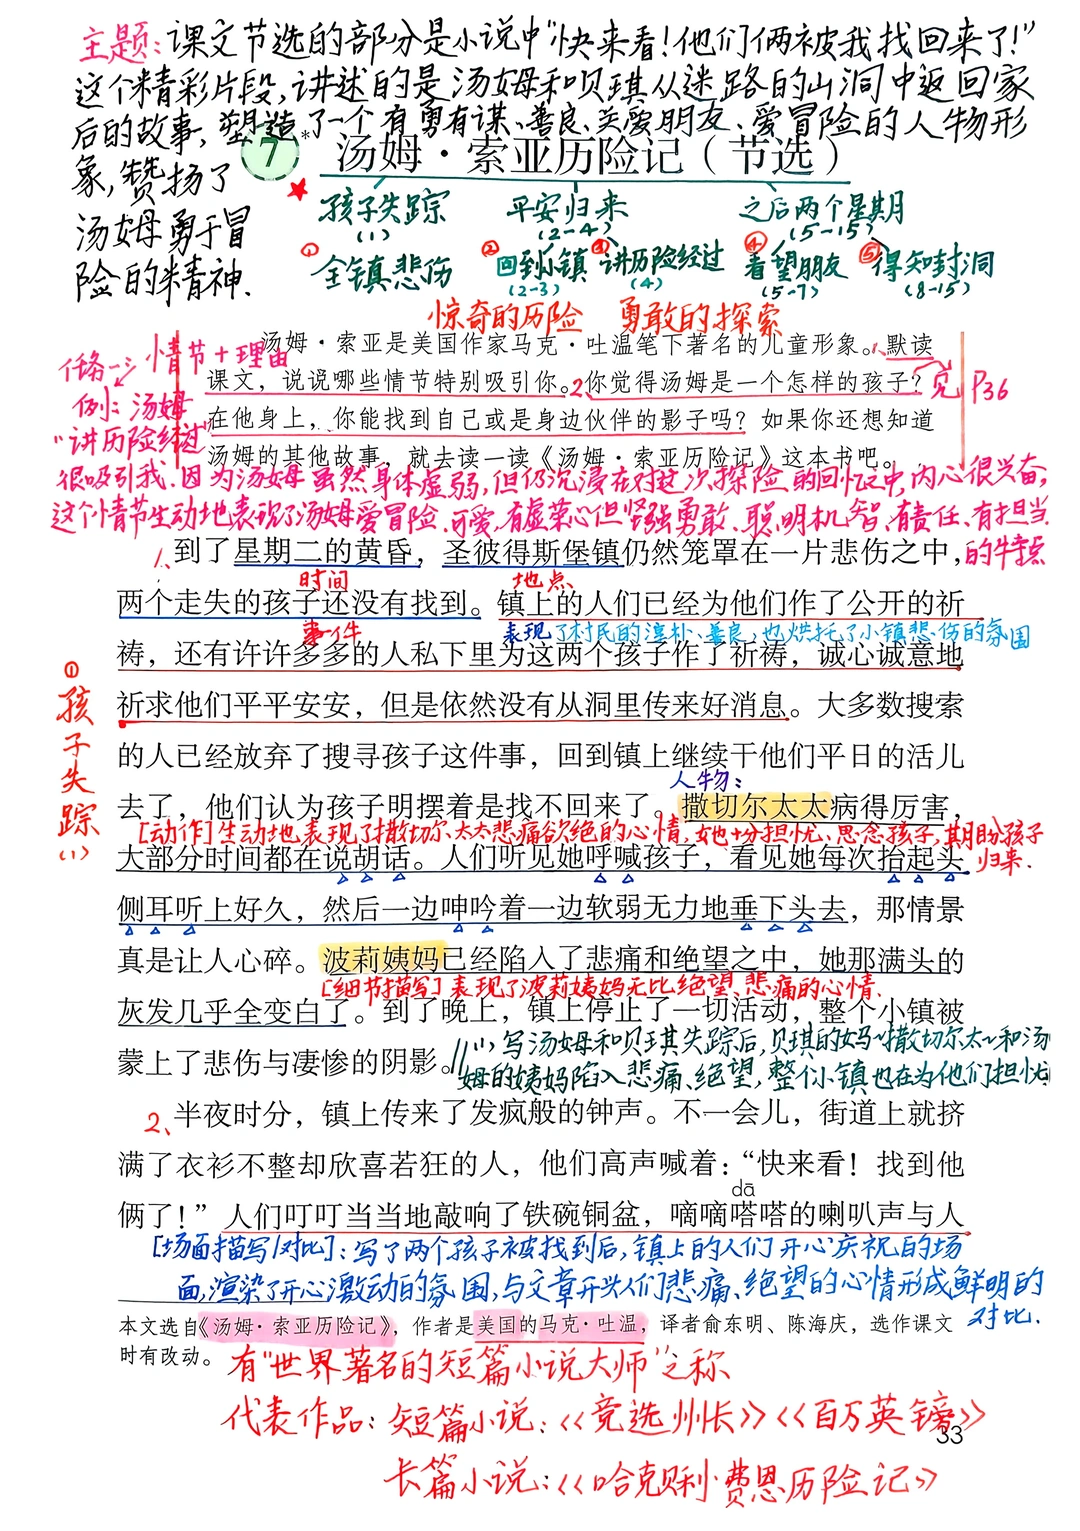 主题:课文节选的部分是小说中“快来看!他们俩被我找回来了!”
这个精彩片段,讲述的是汤姆和贝琪从迷路的山洞中返回家
后的故事,塑造了一个有勇有谋、善良、关爱朋友、爱冒险的人物形
象,赞扬了
汤姆勇于冒
险的精神.
7 * 汤姆·索亚历险记(节选)
孩子失踪 平安归来 之后两个星期
(1) (2-4) (5-15)
① ② ③ ④ ⑤
全镇悲伤 回到小镇 讲历险经过 看望朋友 得知封洞
(2-3) (4) (5-7) (8-15)
惊奇的历险 勇敢的探索
汤姆·索亚是美国作家马克·吐温笔下著名的儿童形象。1、默读
课文,说说哪些情节特别吸引你。2、你觉得汤姆是一个怎样的孩子?
在他身上,你能找到自己或是身边伙伴的影子吗?如果你还想知道
汤姆的其他故事,就去读一读《汤姆·索亚历险记》这本书吧。
见P36
任务一→情节+理由
例:汤姆
“讲历险经过”
很吸引我.因为汤姆虽然身体虚弱,但仍沉浸在对这次探险的回忆中,内心很兴奋,
这个情节生动地表现了汤姆爱冒险、可爱、有虚荣心但坚强勇敢、聪明机智、有责任、有担当
的特点
1、到了星期二的黄昏,圣彼得斯堡镇仍然笼罩在一片悲伤之中,
时间 地点
两个走失的孩子还没有找到。镇上的人们已经为他们作了公开的祈
事件 表现了村民的淳朴、善良,也烘托了小镇悲伤的氛围
祷,还有许许多多的人私下里为这两个孩子作了祈祷,诚心诚意地
祈求他们平平安安,但是依然没有从洞里传来好消息。大多数搜索
的人已经放弃了搜寻孩子这件事,回到镇上继续干他们平日的活儿
人物:
去了,他们认为孩子明摆着是找不回来了。撒切尔太太病得厉害,
[动作]生动地表现了撒切尔太太悲痛欲绝的心情,她十分担忧、思念孩子,期盼孩子
归来.
大部分时间都在说胡话。人们听见她呼喊孩子,看见她每次抬起头
侧耳听上好久,然后一边呻吟着一边软弱无力地垂下头去,那情景
真是让人心碎。波莉姨妈已经陷入了悲痛和绝望之中,她那满头的
[细节描写]表现了波莉姨妈无比绝望、悲痛的心情.
灰发几乎全变白了。到了晚上,镇上停止了一切活动,整个小镇被
蒙上了悲伤与凄惨的阴影。
//(1)写汤姆和贝琪失踪后,贝琪的妈~撒切尔太~和汤
姆的姨妈陷入悲痛、绝望,整个小镇也在为他们担忧
① 孩子失踪(1)
2、半夜时分,镇上传来了发疯般的钟声。不一会儿,街道上就挤
满了衣衫不整却欣喜若狂的人,他们高声喊着:“快来看!找到他
dā
俩了!”人们叮叮当当地敲响了铁碗铜盆,嘀嘀嗒嗒的喇叭声与人
[场面描写/对比]:写了两个孩子被找到后,镇上的人们开心庆祝的场
面,渲染了开心激动的氛围,与文章开头人们悲痛、绝望的心情形成鲜明的
对比.
本文选自《汤姆·索亚历险记》,作者是美国的马克·吐温,译者俞东明、陈海庆,选作课文
时有改动。
有“世界著名的短篇小说大师”之称
代表作品:短篇小说:《竞选州长》《百万英镑》
33
长篇小说:《哈克贝利·费恩历险记》